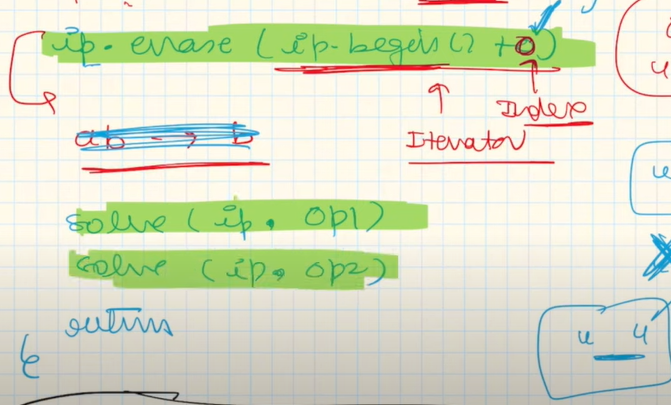 ip. erase (ip.begin() + 0)
Index
Iterator
ab → b
solve (ip, op1)
solve (ip, op2)
return
u u